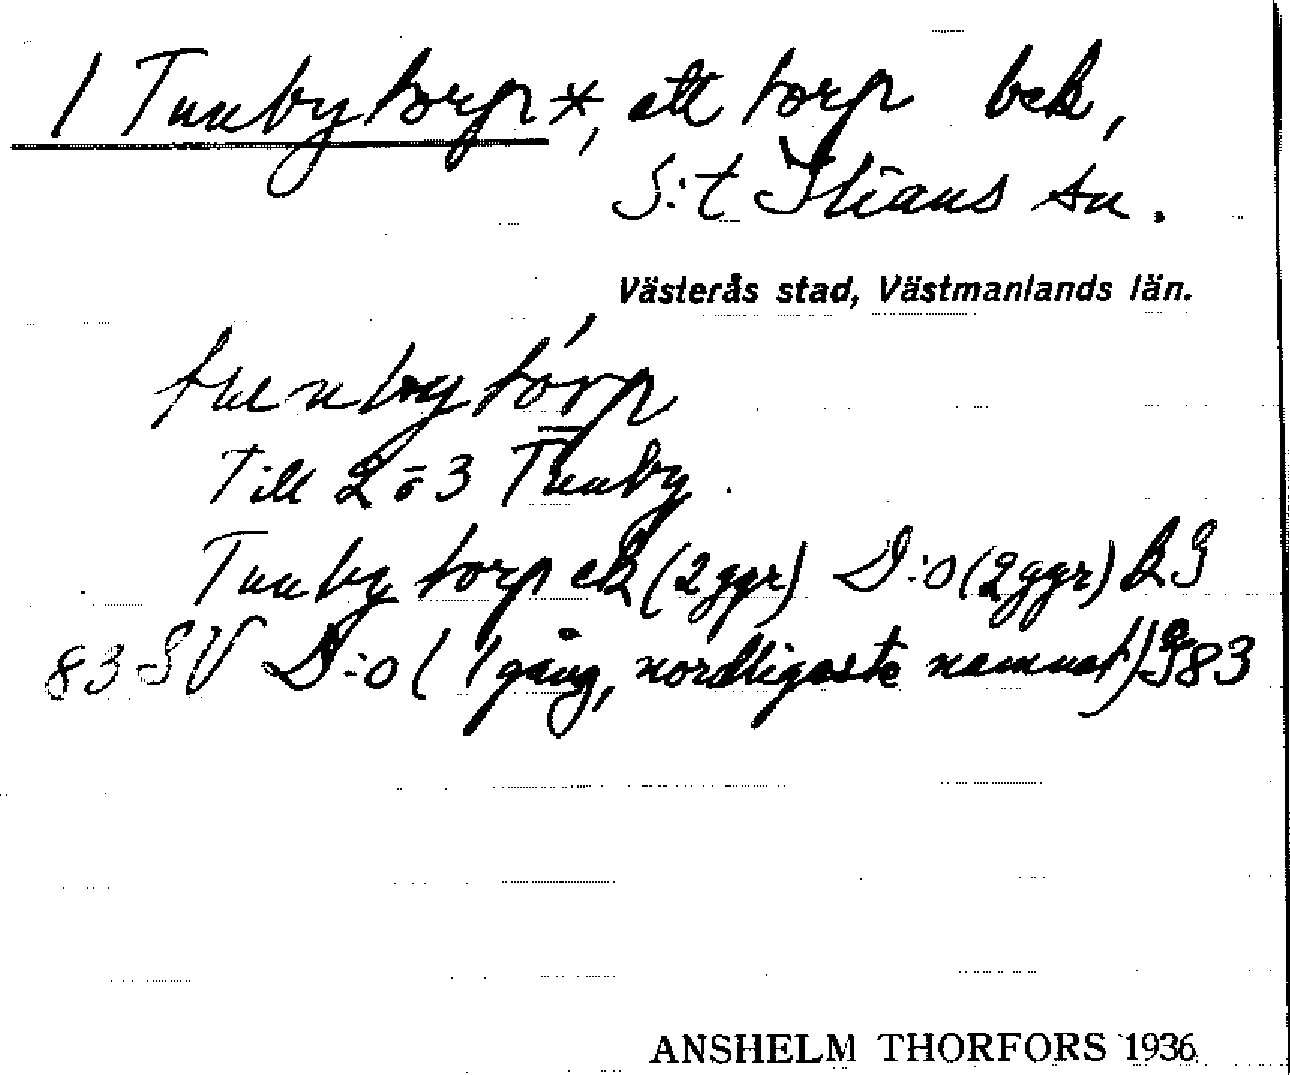 1 Tunbytorp *, ett torp bek,
S:t Ilians sn.
Västerås stad, Västmanlands län.
Till 2 o 3 Tunby.
Tunby torp ek (2ggr) D:o (2ggr)
83 SV D:o (1 gång, nordligaste namnet) G 83
ANSHELM THORFORS 1936